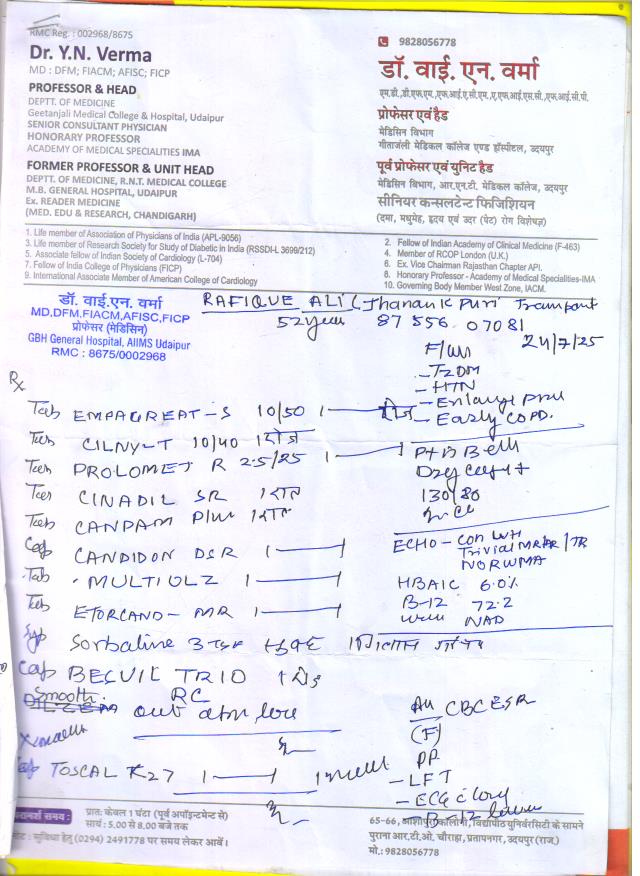 RMC Reg. : 002968/8675
Dr. Y.N. Verma
MD : DFM; FIACM; AFISC; FICP
PROFESSOR & HEAD
DEPTT. OF MEDICINE
Geetanjali Medical College & Hospital, Udaipur
SENIOR CONSULTANT PHYSICIAN
HONORARY PROFESSOR
ACADEMY OF MEDICAL SPECIALITIES IMA
FORMER PROFESSOR & UNIT HEAD
DEPTT. OF MEDICINE, R.N.T. MEDICAL COLLEGE
M.B. GENERAL HOSPITAL, UDAIPUR
Ex. READER MEDICINE
(MED. EDU & RESEARCH, CHANDIGARH)
9828056778
डॉ. वाई. एन. वर्मा
एम.डी.,डी.एफ.एम.,एफ.आई.ए.सी.एम.,ए.एफ.आई.एस.सी.,एफ.आई.सी.पी.
प्रोफेसर एवं हैड
मेडिसिन विभाग
गीतांजली मेडिकल कॉलेज एण्ड हॉस्पीटल, उदयपुर
पूर्व प्रोफेसर एवं यूनिट हैड
मेडिसिन विभाग, आर.एन.टी. मेडिकल कॉलेज, उदयपुर
सीनियर कन्सलटेन्ट फिजिशियन
(दमा, मधुमेह, हृदय एवं उदर (पेट) रोग विशेषज्ञ)
1. Life member of Association of Physicians of India (APL-9056)
3. Life member of Research Society for Study of Diabetic in India (RSSDI-L 3699/212)
5. Associate fellow of Indian Society of Cardiology (L-704)
7. Fellow of India College of Physicians (FICP)
9. International Associate Member of American College of Cardiology
2. Fellow of Indian Academy of Clinical Medicine (F-463)
4. Member of RCOP London (U.K.)
6. Ex. Vice Chairman Rajasthan Chapter API.
8. Honorary Professor - Academy of Medical Specialities-IMA
10. Governing Body Member West Zone, IACM.
डॉ. वाई.एन. वर्मा
MD,DFM,FIACM,AFISC,FICP
प्रोफेसर (मेडिसिन)
GBH General Hospital, AIIMS Udaipur
RMC : 8675/0002968
RAFIQUE ALI
52 year 87 556 07081
24/7/25
- T2DM
- HTN
- Early COPD.
Rx
Tab EMPAGREAT-S 10/50 1 रोज
Tab CILNY-T 10/40 1 रोज
Tab PROLOMET R 25/25 1
Tab CINADIL SR 1 रात
Tab CANPAM Plus 1 रात
Cap CANDIDON DSR 1
Tab MULTIULZ 1
Tab ETORCAND-MR 1
Syp Sorbaline 3 TSF
Cap BECVIK TRIO 1 रोज
Smooth RC
Cap TOSCAL K27 1
130/80
ECHO - Con LVH
Trivial MR/AR/TR
NORWMA
HBA1C 6.0%
B-12 72.2
NAD
CBC ESR
(F)
PP
- LFT
- B-12
परामर्श समय :
प्रात: केवल 1 घंटा (पूर्व अपॉइन्टमेन्ट से)
सायं : 5.00 से 8.00 बजे तक
नोट : सुविधा हेतु (0294) 2491778 पर समय लेकर आवें।
65-66, आशापुरा कॉलोनी, विद्यापीठ युनिवरसिटी के सामने
पुराना आर.टी.ओ. चौराहा, प्रतापनगर, उदयपुर (राज.)
मो.: 9828056778